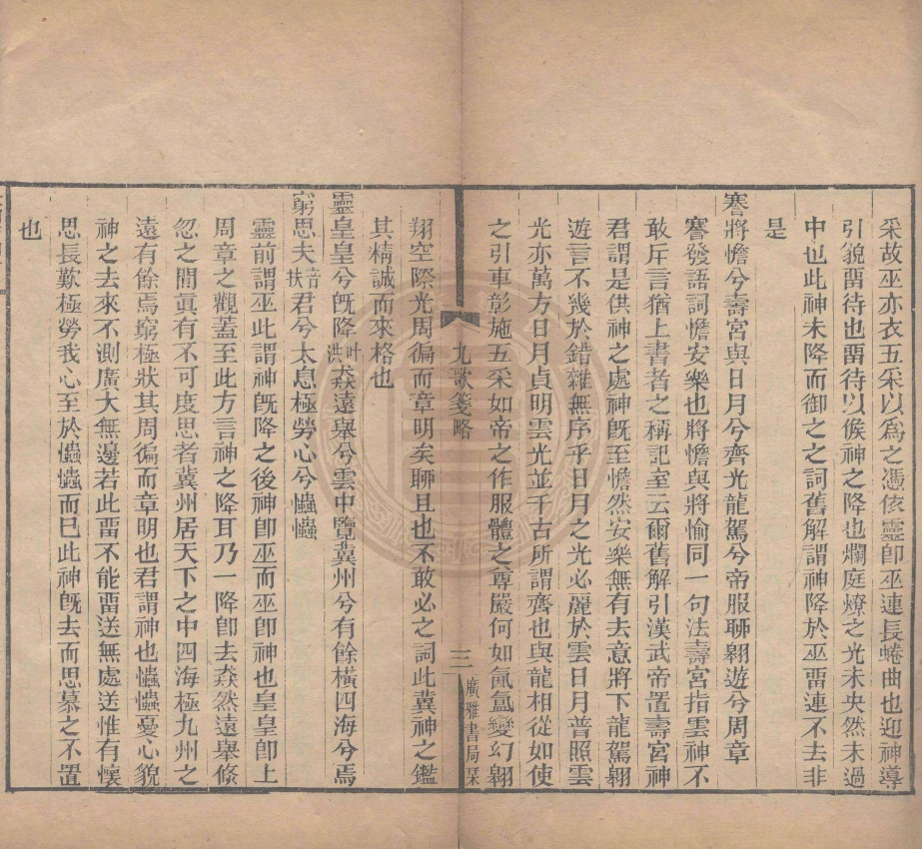 采故巫亦衣五采以爲之憑依靈卽巫連長蜷曲也迎神導
引貌畱待也畱待以候神之降也爛庭燎之光未央然未過
中也此神未降而御之之詞舊解謂神降於巫畱連不去非
是
謇將憺兮壽宮與日月兮齊光龍駕兮帝服聊翱遊兮周章
謇發語詞憺安樂也將憺與將愉同一句法壽宮指雲神不
敢斥言猶上書者之稱記室云爾舊解引漢武帝置壽宮神
君謂是供神之處神旣至憺然安樂無有去意將下龍駕翱
遊言不幾於錯雜無序乎日月之光必麗於雲日月普照雲
光亦萬方日月貞明雲光並千古所謂齊也與龍相從如使
之引車彰施五采如帝之作服體之尊嚴何如氤氳變幻翱
九歌箋略
三
廣雅書局栞
翔空際光周徧而章明矣聊且也不敢必之詞此冀神之鑑
其精誠而來格也
靈皇皇兮旣降叶洪猋遠舉兮雲中覽冀州兮有餘橫四海兮焉
窮思夫音扶君兮太息極勞心兮𢥞𢥞
靈前謂巫此謂神旣降之後神卽巫而巫卽神也皇皇卽上
周章之觀蓋至此方言神之降耳乃一降卽去猋然遠舉倐
忽之閒眞有不可度思者冀州居天下之中四海極九州之
遠有餘焉窮極狀其周徧而章明也君謂神也𢥞𢥞憂心貌
神之去來不測廣大無邊若此畱不能畱送無處送惟有懷
思長歎極勞我心至於𢥞𢥞而已此神旣去而思慕之不置
也